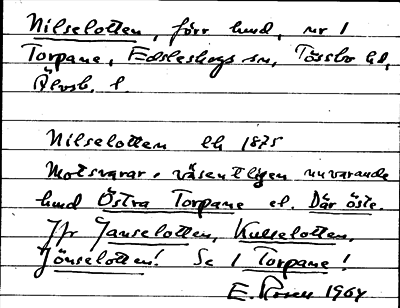 Nilselotten, förr hmd, nr 1
Torpane, Edsleskogs sn, Tössbo hd,
Älvsb. l.
Nilselotten lk 1875
Motsvarar väsentligen nuvarande
hmd Östra Torpane el. Där öste.
Jfr Janselotten, Kulselotten,
Jönselotten! Se 1 Torpane!
E. 1964